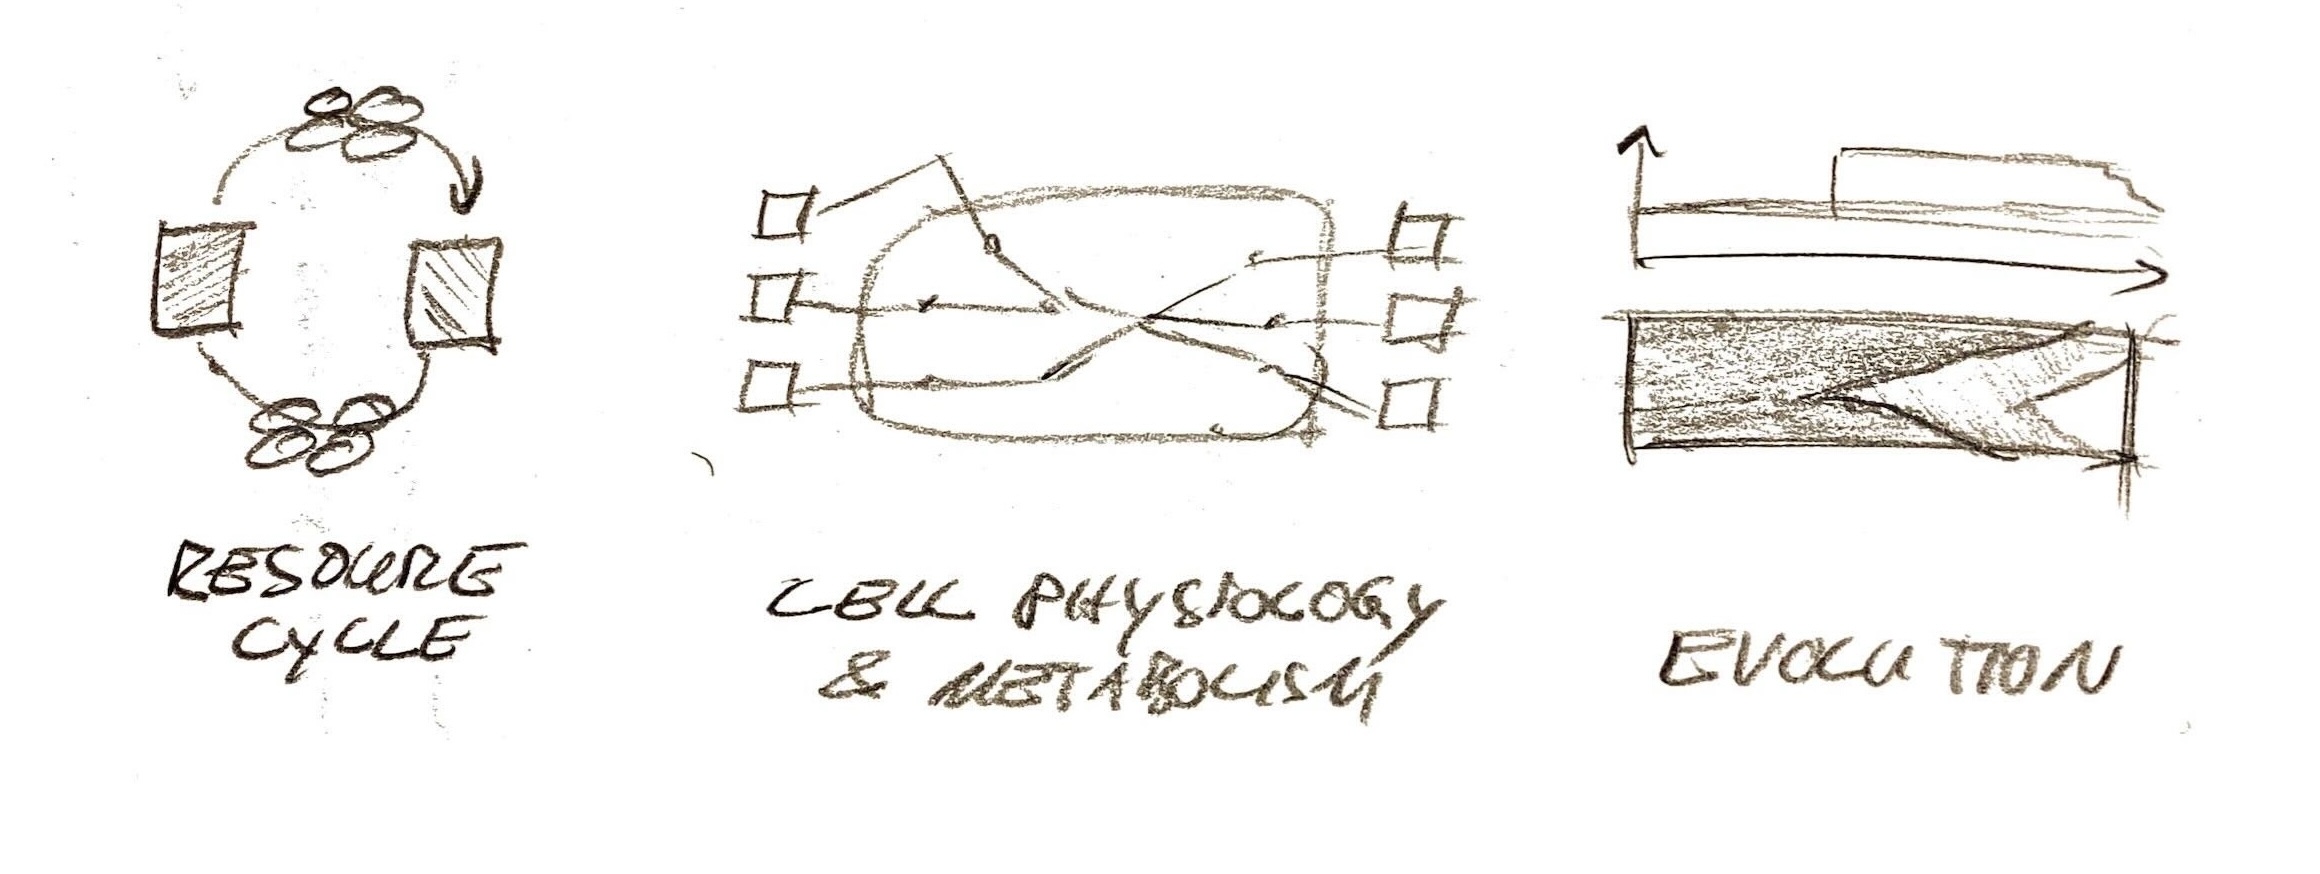 RESOURE
CYCLE
CELL PHYSIOLOGY
& METABOLISM
EVOLUTION